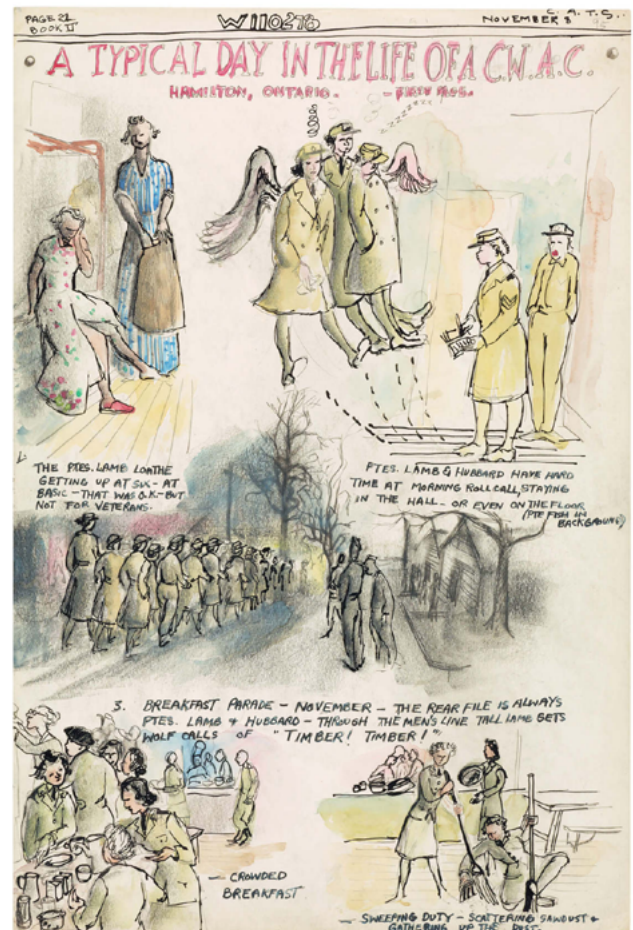 PAGE 21
BOOK II
W110278
C.A.T.S.
NOVEMBER 8
A TYPICAL DAY IN THE LIFE OF A C.W.A.C.
HAMILTON, ONTARIO.
THE PTES. LAMB LOATHE
GETTING UP AT SIX - AT
BASIC - THAT WAS O.K. - BUT
NOT FOR VETERANS.
PTES. LAMB & HUBBARD HAVE HARD
TIME AT MORNING ROLL CALL, STAYING
IN THE HALL - OR EVEN ON THE FLOOR
(PTE FISH IN
BACKGROUND)
3. BREAKFAST PARADE - NOVEMBER - THE REAR FILE IS ALWAYS
PTES. LAMB & HUBBARD - THROUGH THE MEN'S LINE TALL LAMB GETS
WOLF CALLS OF "TIMBER! TIMBER!"
- CROWDED
BREAKFAST
- SWEEPING DUTY - SCATTERING SAWDUST &
GATHERING UP THE DUST.